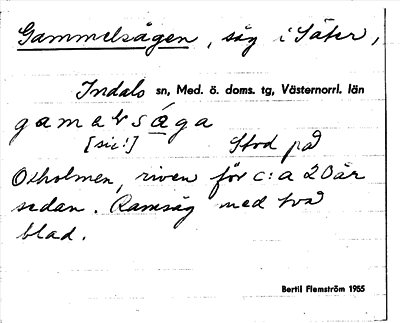 Gammelsågen, såg i Säter,
Indals sn, Med. ö. doms. tg, Västernorrl. län
gamalsága
[sic!] Stod på
Osholmen, riven för c:a 20 år
sedan. Ramsåg med två
blad.
Bertil Flemström 1955